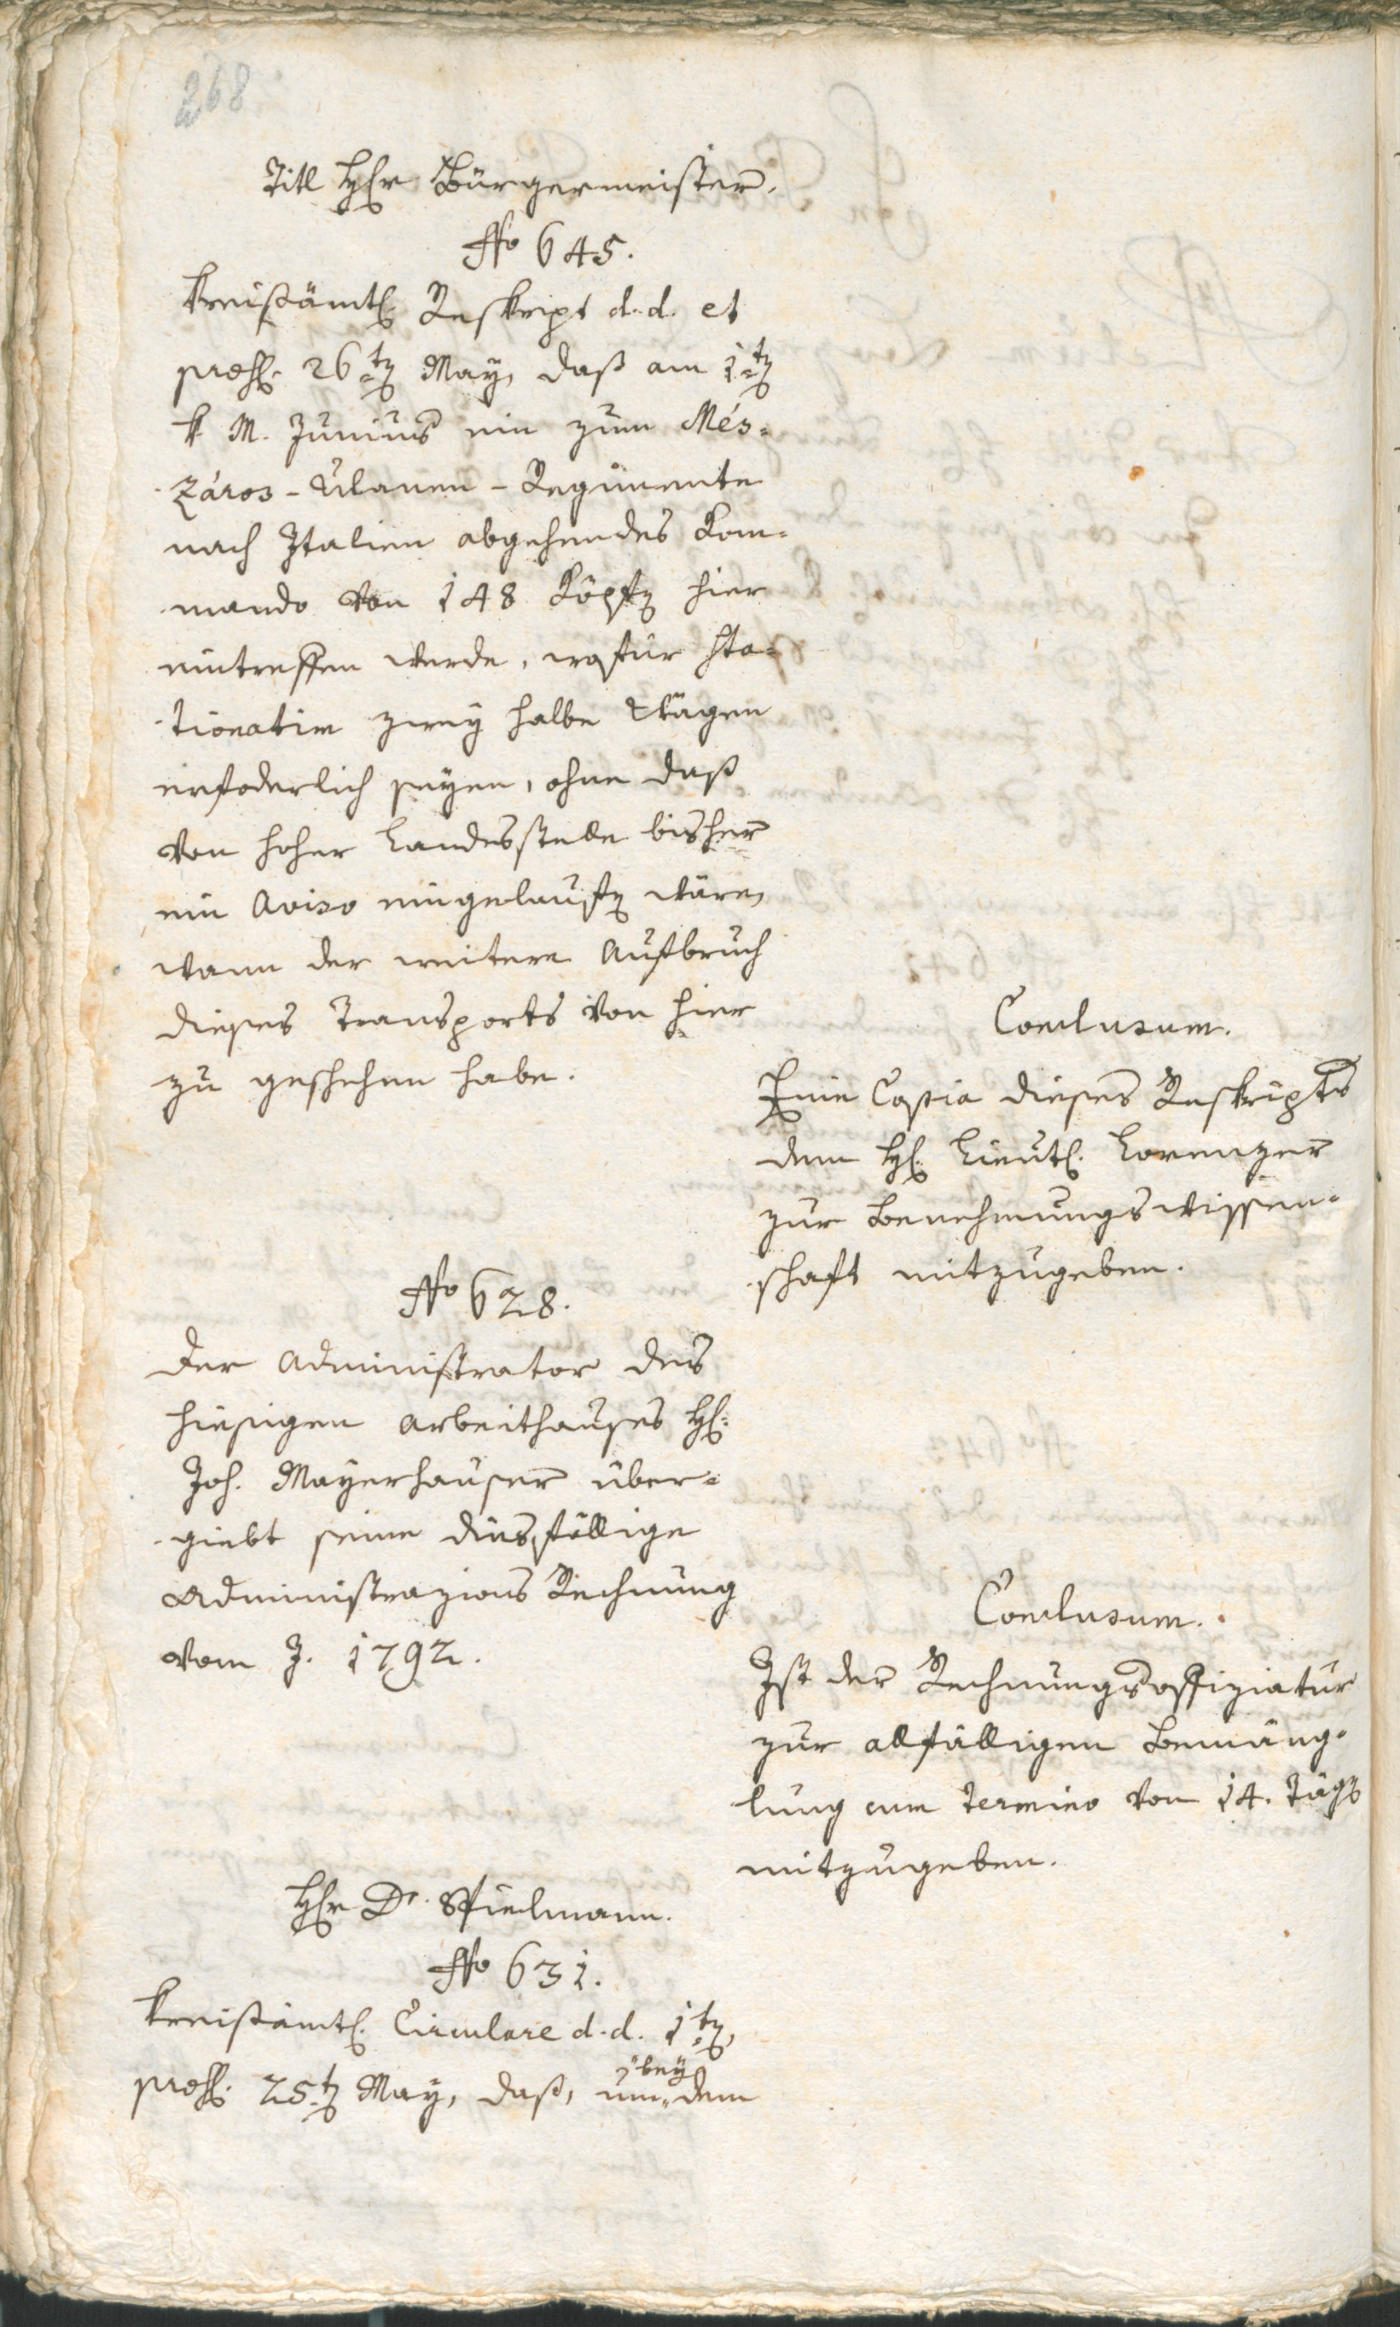 268
Titl H[er]r Bürgermeister.
No 645.
Kreißämtl. Reskript d. d. et
præs. 26ten May, daß am 1ten
k. M. Junius ein zum Més=
záros-Ulanen-Regimente
nach Italien abgehendes Kom=
mando von 148 Köpfen hier
eintreffen werde, wofür sta=
tionatim zwey halbe Wägen
erfoderlich seyen, ohne daß
von hoher Landesstelle bisher
ein Aviso eingelaufen wäre,
wann der weitere Aufbruch
dieses Transports von hier
zu geschehen habe.
Conclusum.
Eine Copia dieses Reskripts
dem H. Lieut. Lorenzer
zur Benehmungswissen=
schaft mitzugeben.
No 628.
Der Administrator des
hiesigen Arbeithauses H.
Joh. Mayerhauser über=
giebt seine diesfällige
Administrazions Rechnung
vom J. 1792.
Conclusum.
Ist der Rechnungsoffiziatur
zur allfälligen Bemäng=
lung cum termino von 14. Täg
mitzugeben.
Hr Dr. Spielmann.
No 631.
Kreisämtl. Circulare d. d. 1ten,
præs. 25ten May, daß, um bey dem